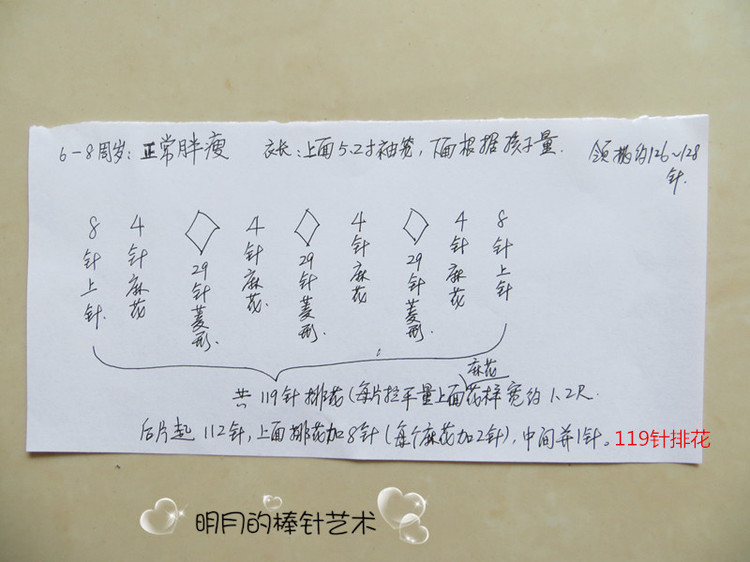 6-8周岁：正常胖瘦 衣长：上面5.2寸袖笼，下面根据孩子量. 领挑约126~128针.
8针上针.
4针麻花
29针菱形.
4针麻花.
29针菱形.
4针麻花
29针菱形.
4针麻花.
8针上针
共119针排花(每片拉平量上面麻花花样宽约1.2尺.
后片起112针，上面排花加8针(每个麻花加2针)，中间并1针。119针排花
明月的棒针艺术